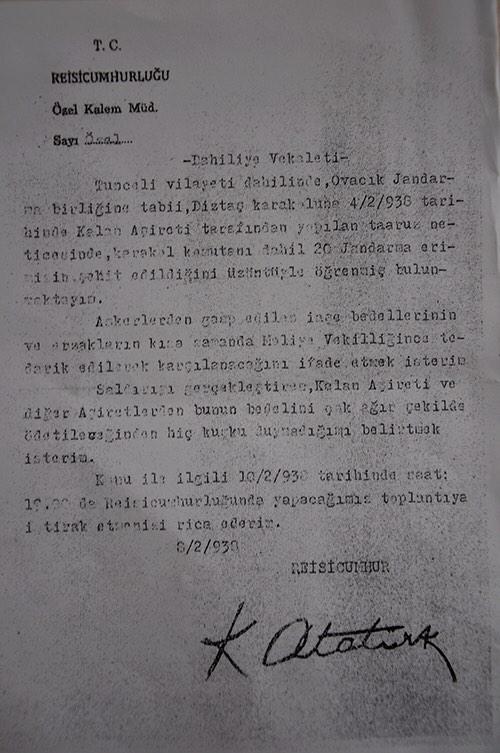 T. C.
REİSİCUMHURLUĞU
Özel Kalem Müd.
Sayı Özel
-Dahiliye Vekaleti-
Tunceli vilayeti dahilinde,Ovacık Jandar-
ma birliğine tabii,Diztaş karakoluna 4/2/938 tari-
hinde Kalan Aşireti tarafından yapılan taaruz ne-
ticesinde,karakol komutanı dahil 20 Jandarma eri-
mizin şehit edildiğini üzüntüyle öğrenmiş bulun-
maktayım.
Askerlerden gasp edilen iaşe bedellerinin
ve erzakların kısa zamanda Maliye Vekilliğince te-
darik edilerek karşılanacağını ifade etmek isterim
Saldırıyı gerçekleştiren,Kalan Aşireti ve
diğer Aşiretlerden bunun bedelini çok ağır şekilde
ödetileceğinden hiç kuşku duymadığımı belirtmek
isterim.
Konu ile ilgili 10/2/938 tarihinde saat:
da Reisicumhurluğunda yapacağımız toplantıya
i tirak etmenizi rica ederim.
8/2/938
REİSİCUMHUR
K Atatürk